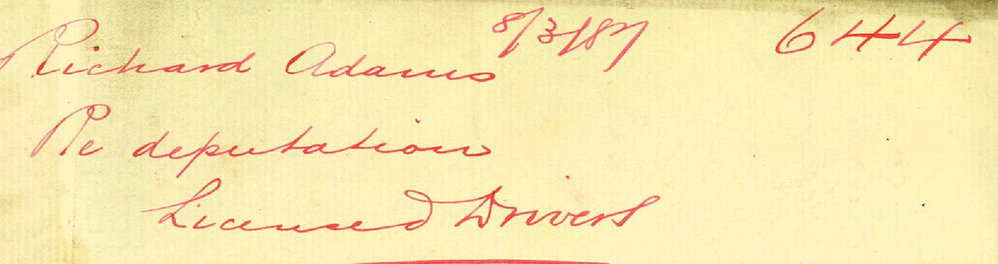 8/3/87 644
Richard Adams
Re deputation
Licensed Drivers